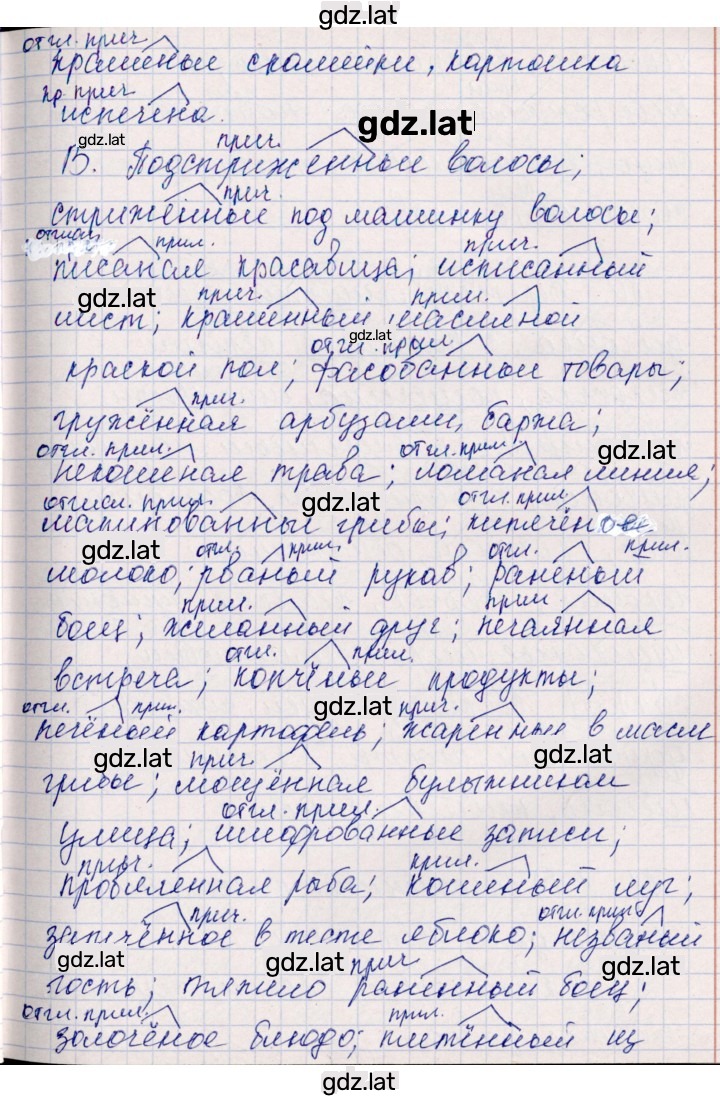 gdz.lat
отгл. прич
крашеные скамейки, картошка
кр. прич
испечена.
gdz.lat
gdz.lat
прич.
В. Подстриженные волосы;
прич.
стриженные под машинку волосы;
прил. прич.
писаная красавица; исписанный
gdz.lat
прич. прил.
лист; крашенный масляной
gdz.lat
отгл. прил
краской пол; фасованные товары;
прич.
гружённая арбузами баржа;
отгл. прил. отгл. прил
gdz.lat
некошеная трава; ломаная линия;
gdz.lat
отгл. прил
маринованные грибы; кипячёное
gdz.lat
отгл. прил. отгл. прил.
молоко; рваный рукав; раненый
прил. прил
боец; желанный друг; нечаянная
отгл. прил.
встреча; копчёные продукты;
gdz.lat
отгл. прил. прич.
печёный картофель; жаренные в масле
gdz.lat
gdz.lat
прич.
грибы; мощённая булыжником
отгл. прил.
улица; шифрованные записи;
прич. прил.
провяленная рыба; кошеный луг;
прич. отгл.
запечённое в тесте яблоко; незваный
gdz.lat
gdz.lat
gdz.lat
прич
гость; тяжело раненный боец;
отгл. прил. прил.
золочёное блюдо; плетённый из
gdz.lat
gdz.lat
gdz.lat